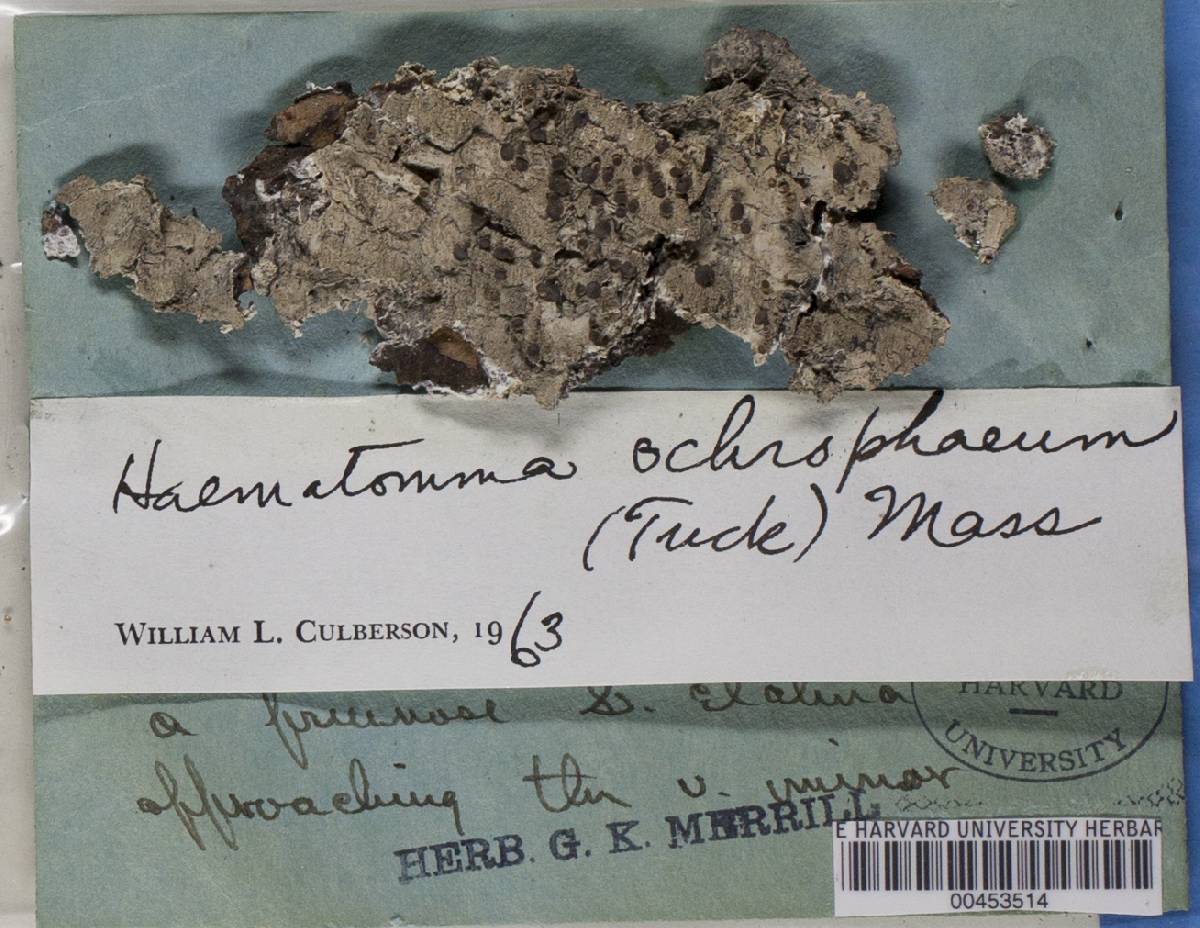 Haematomma ochrophaeum
(Tuck) Mass
WILLIAM L. CULBERSON, 1963
a pruinose L. elatina
approaching the v. minor
HARVARD
UNIVERSITY
HERB. G. K. MERRILL
E HARVARD UNIVERSITY HERBAR
00453514